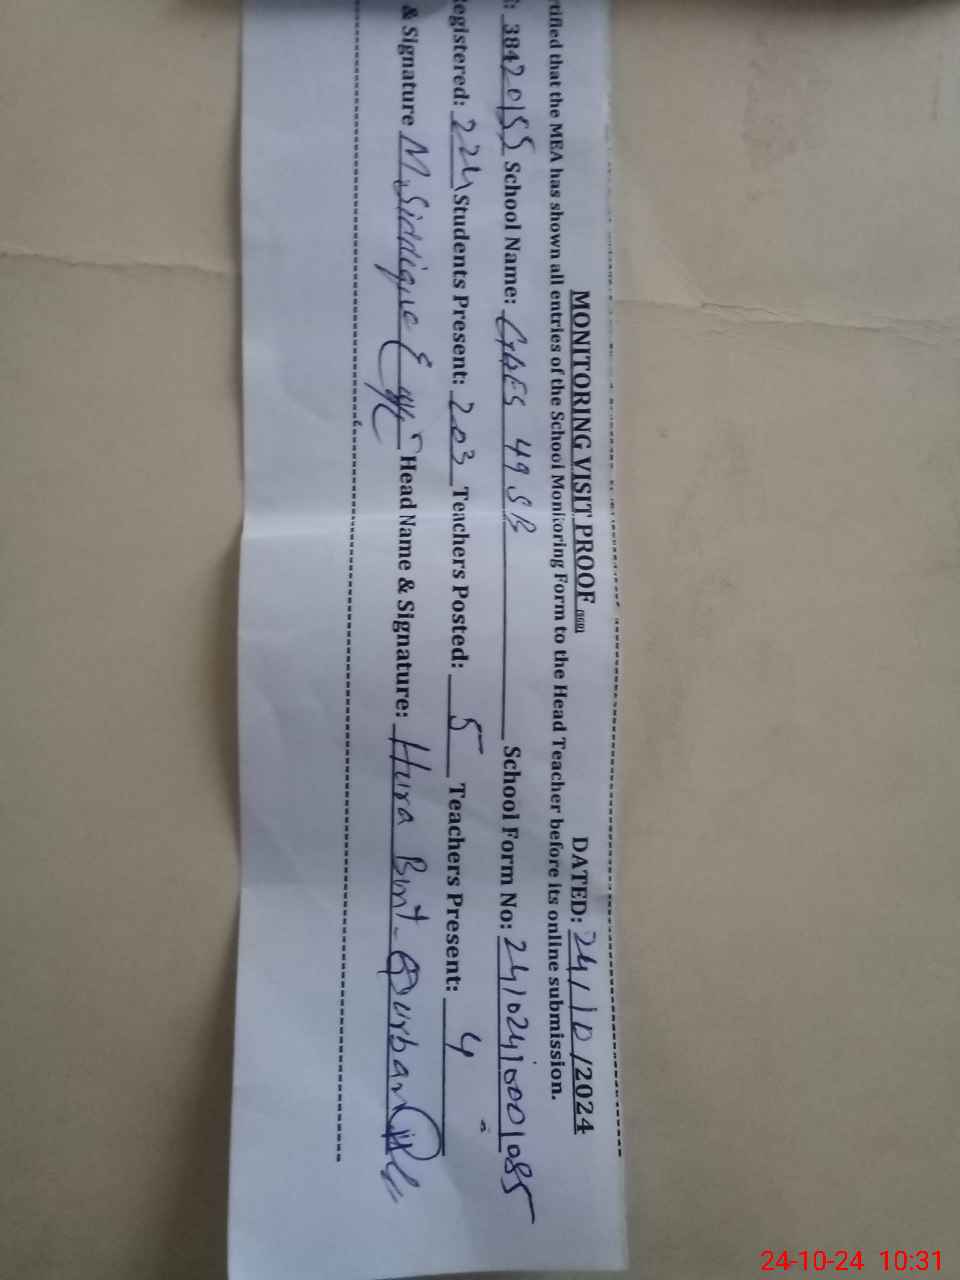 MONITORING VISIT PROOF DATED: 24/10/2024
rtified that the MEA has shown all entries of the School Monitoring Form to the Head Teacher before its online submission.
: 38420155 School Name: GGES 49 SB School Form No: 241024100001085
egistered: 224 Students Present: 203 Teachers Posted: 5 Teachers Present: 4
& Signature M. Siddique Head Name & Signature: Hura Bint-Qurban
24-10-24 10:31